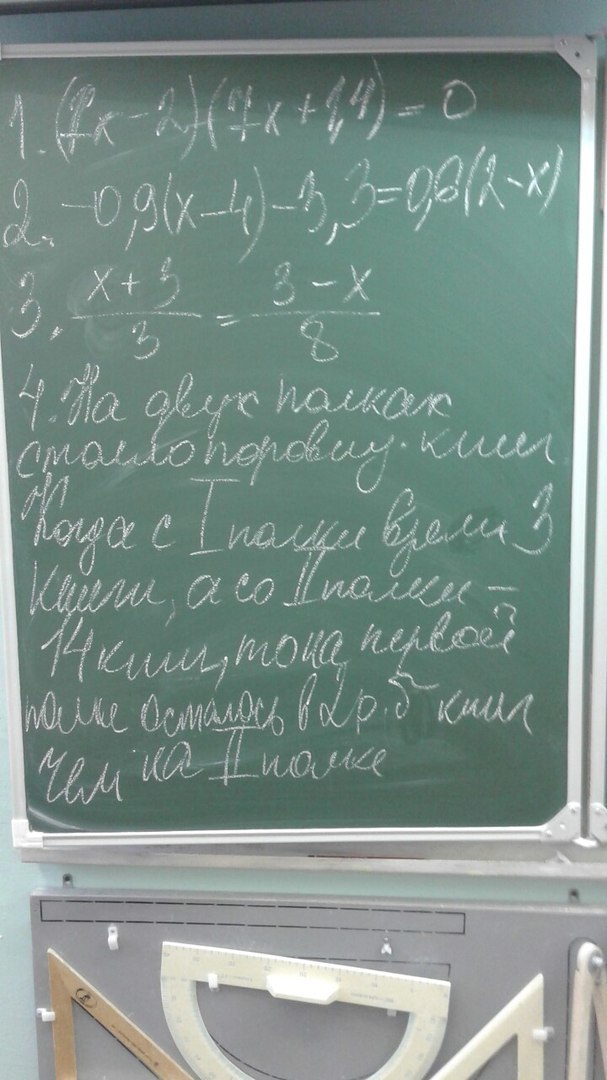 1. (7x-2)(7x+1,4)=0
2. -0,9(x-4)-3,3=0,6(2-x)
3. \frac{x+3}{3} = \frac{3-x}{8}
4. На двух полках
стояло поровну книг
Когда с I полки взяли 3
книги, а со II полки-
14 книг, то на первой
полке осталось в 2 р. б книг
чем на II полке